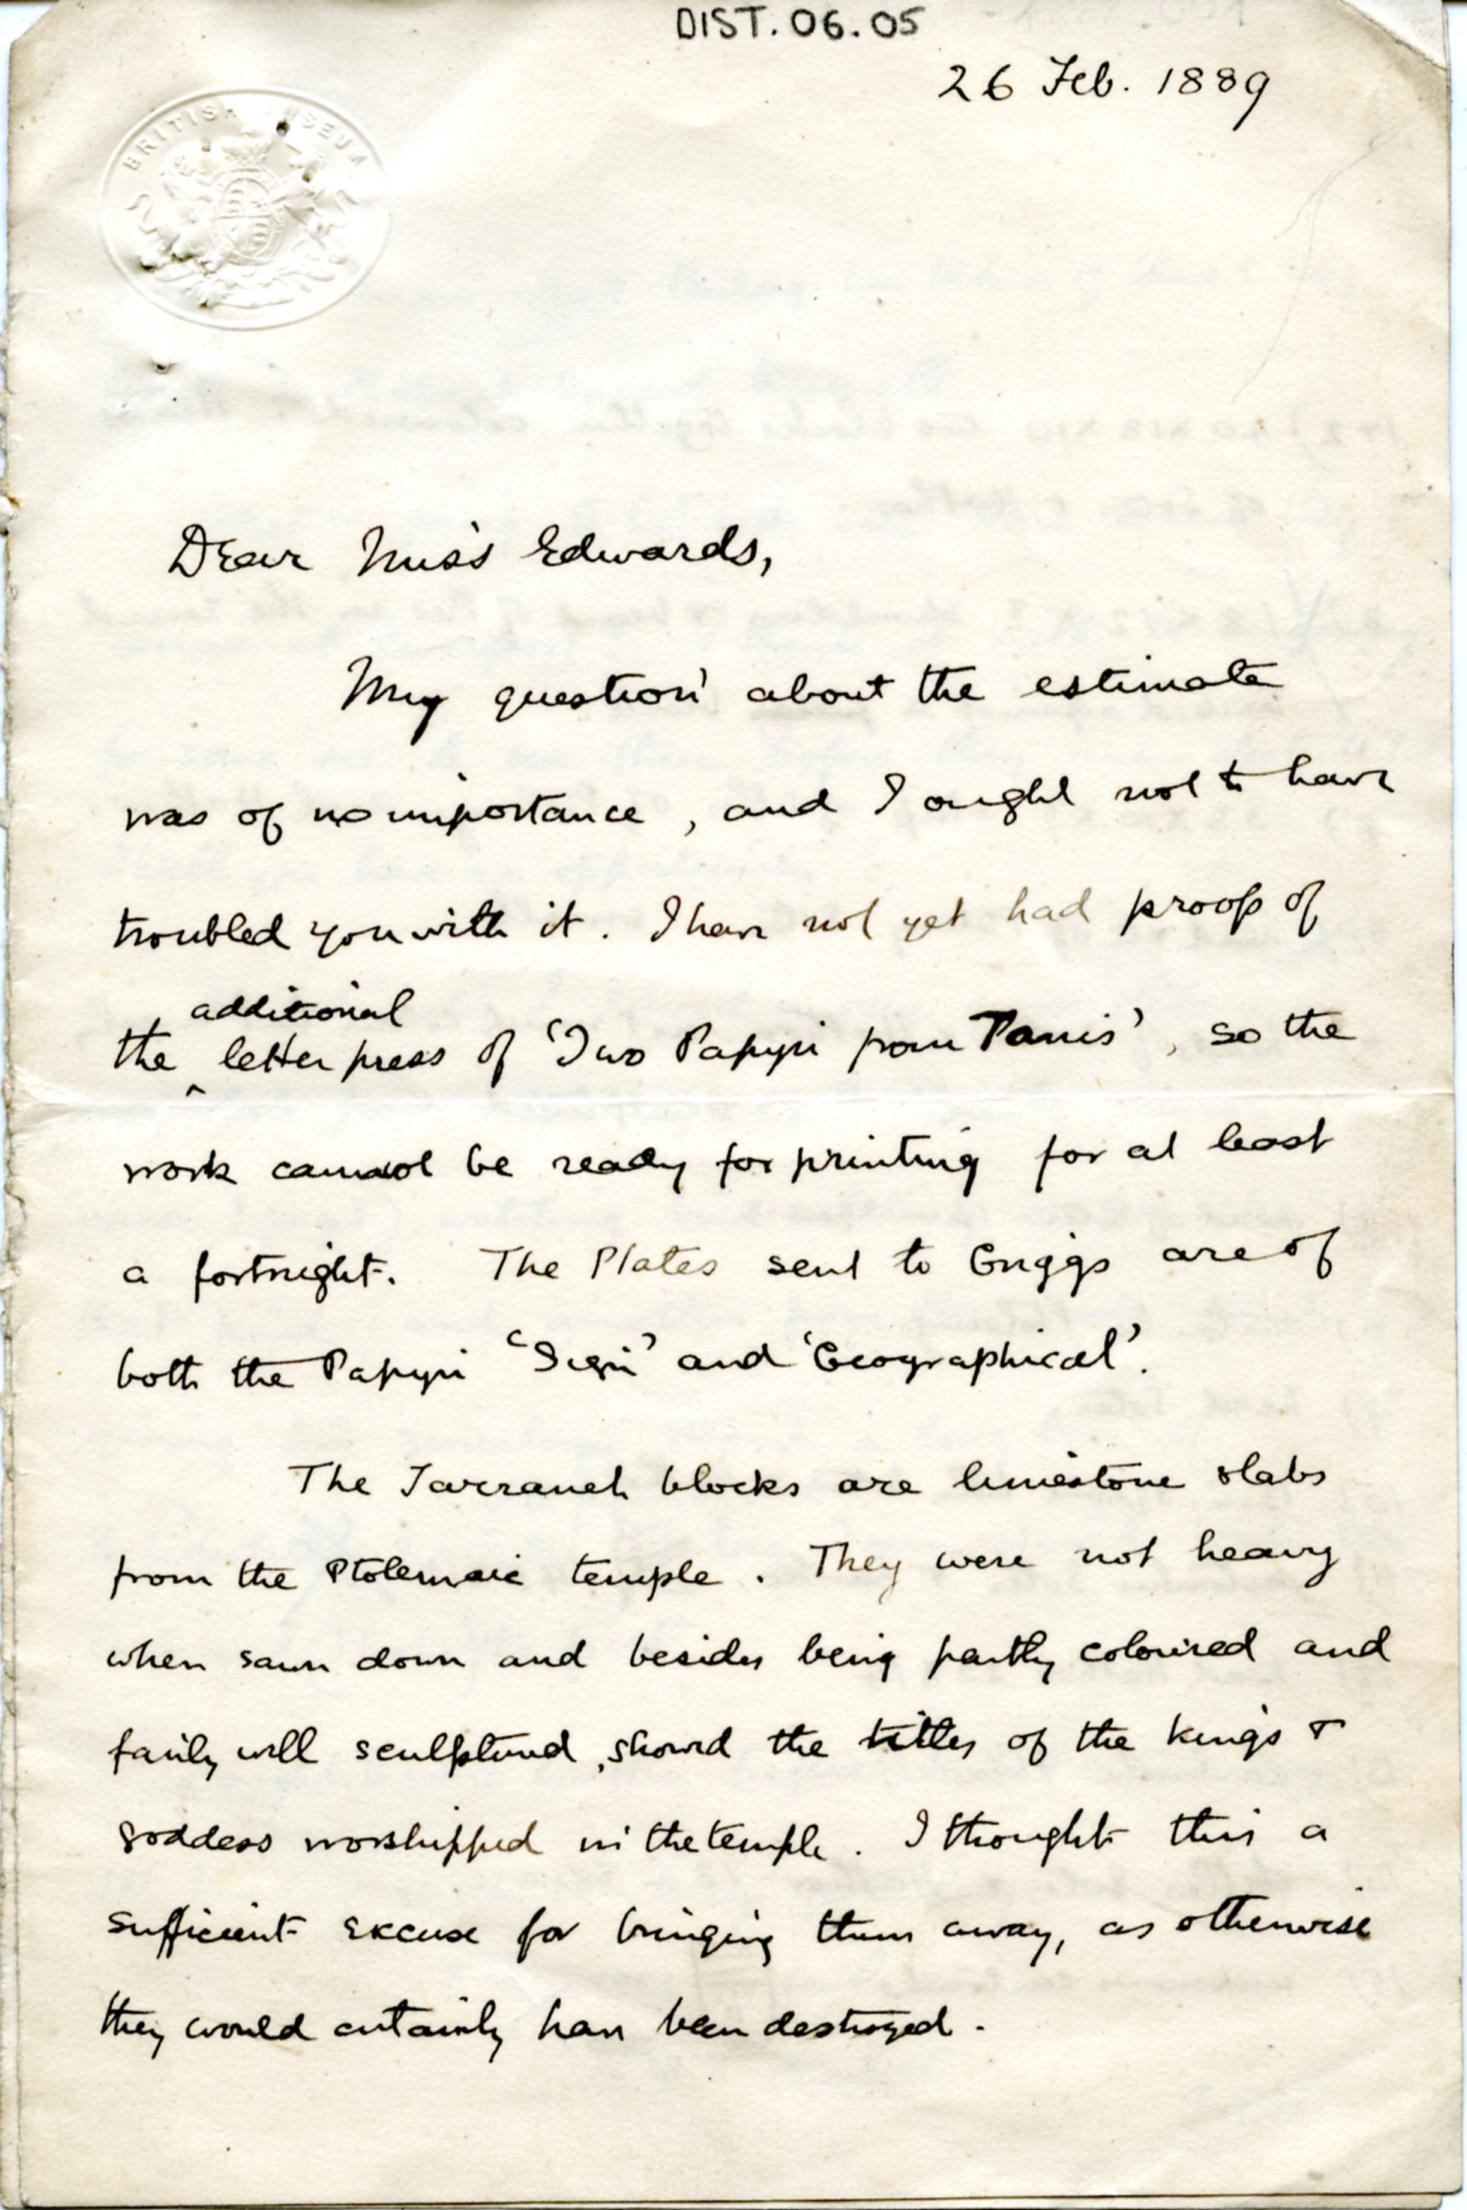 DIST. 06. 05
26 Feb. 1889
BRITISH MUSEUM
Dear Miss Edwards,
My question about the estimate
was of no importance, and I ought not to have
troubled you with it. I have not yet had proof of
additional
the ‸ letterpress of 'Two Papyri from Tanis', so the
work cannot be ready for printing for at least
a fortnight. The Plates sent to Griggs are of
both the Papyri 'Sign' and 'Geographical'.
The Tarraneh blocks are limestone slabs
from the Ptolemaic temple. They were not heavy
when sawn down and besides being partly coloured and
fairly well sculptured, showed the titles of the kings &
goddess worshipped in the temple. I thought this a
sufficient excuse for bringing them away, as otherwise
they would certainly have been destroyed.